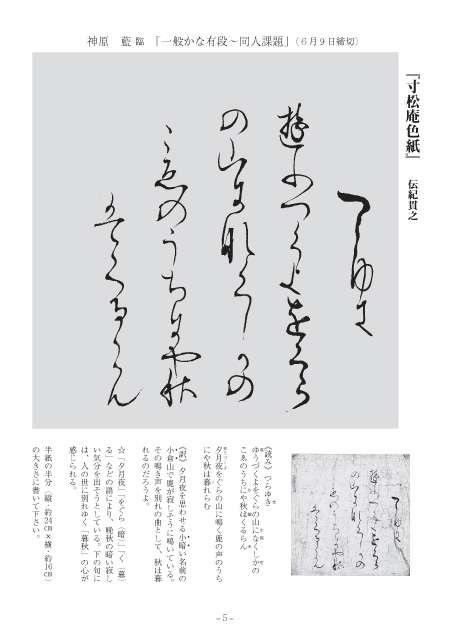 神原 藍 臨 「一般かな有段～同人課題」（６月９日締切）
『寸松庵色紙』 伝紀貫之
つらゆき
遊ふつくよをくら
の山になくしかの
こゑのうちにや秋
はくるらん
《読み》つらゆき
ゆうづくよをぐらの山になくしかの
こゑのうちにや秋はくるらん
夕月夜をぐらの山に鳴く鹿の声のうち
にや秋は暮れらむ
《訳》夕月夜を思わせる小暗い名前の
小倉山で鹿が寂しそうに鳴いている。
その鳴き声を別れの曲として、秋は暮
れるのだろうよ。
☆「夕月夜」「をぐら（暗）」「く（暮）
る」などの語により、晩秋の暗い寂し
い気分を出そうとしている。下の句に
は、人の世に別れゆく「暮秋」の心が
感じられる。
半紙の半分（縦・約24㎝×横・約16㎝）
の大きさに書いて下さい。
－5－